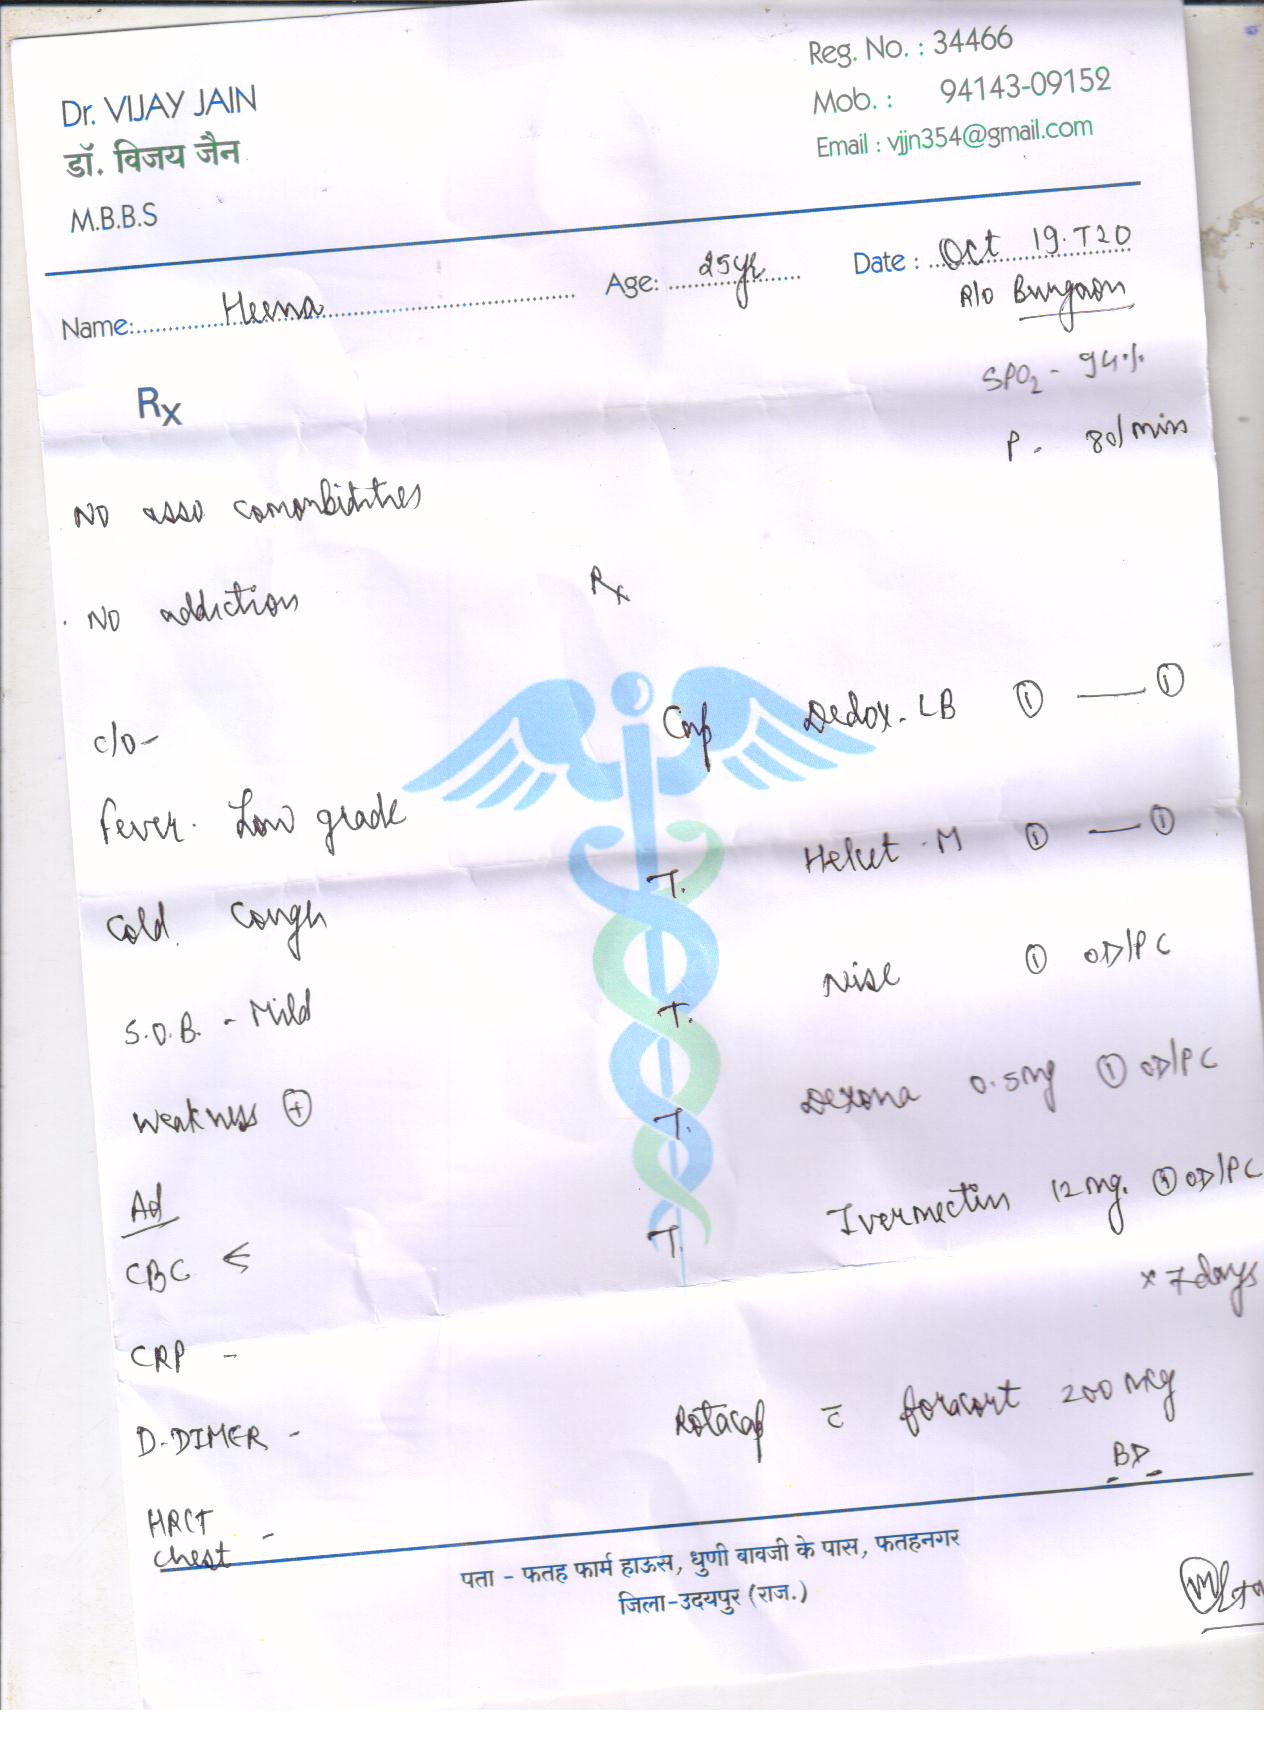 Dr. VIJAY JAIN
डॉ. विजय जैन
M.B.B.S
Reg. No. : 34466
Mob. : 94143-09152
Email : vjjn354@gmail.com
Name: Heena Age: 25yr Date : Oct 19. T20
R/o Burgaon
SPO2 - 94%
P - 80/min
Rx
NO asso comorbidities
NO addiction
c/o -
fever. Low grade
Cold. Cough
S.O.B. - Mild
Weakness +
Ad
CBC <
CRP -
D-DIMER -
HRCT
Chest -
Rx
Cap Dedox-LB ① — ①
T. Helut-M ① — ①
T. Nise ① OD/PC
T. Dexona 0.5mg ① OD/PC
T. Ivermectin 12mg. ① OD/PC
x 7 days
Rotacap c̄ foracort 200 mcg
BD
पता - फतह फार्म हाऊस, धुणी बावजी के पास, फतहनगर
जिला-उदयपुर (राज.)